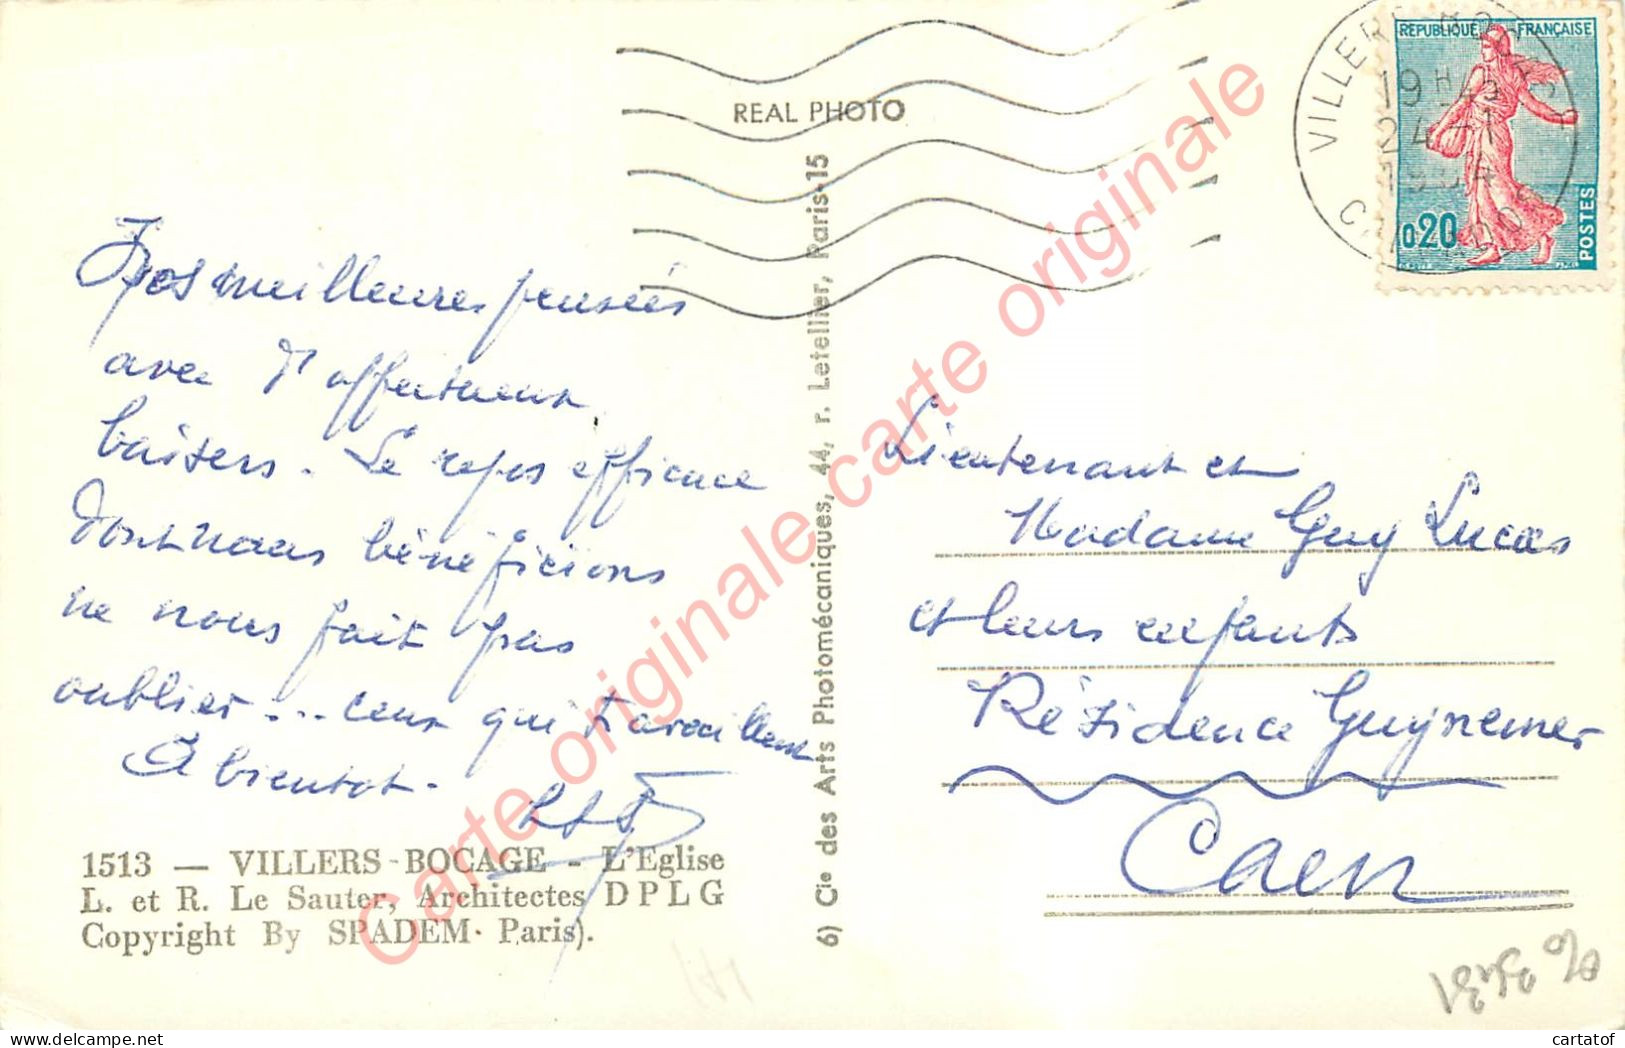 REAL PHOTO
RÉPUBLIQUE FRANÇAISE
0,20
POSTES
VILLERS BOCAGE
19 H 45
24 - 1
CALVADOS
Nos meilleures pensées
avec d'affectueux
baisers. Le repos efficace
dont nous bénéficions
ne nous fait pas
oublier... ceux qui travaillent
A bientôt.
1513 — VILLERS-BOCAGE - L'Eglise
L. et R. Le Sauter, Architectes D P L G
Copyright By SPADEM - Paris).
6) Cie des Arts Photomécaniques, 44, r. Letellier, Paris-15
Lieutenant et
Madame Guy Lucas
et leurs enfants
Résidence Guynemer
Caen
Carte originale carte originale carte originale
cartatof